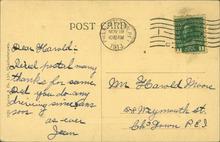 POST CARD
NOV 19
1913
Dear Harold:-
postal many
thanks for same
Did you do any
driving since
as ever
Jean
Mr Harold Moore
Weymouth St.
Ch'Town P.E.I